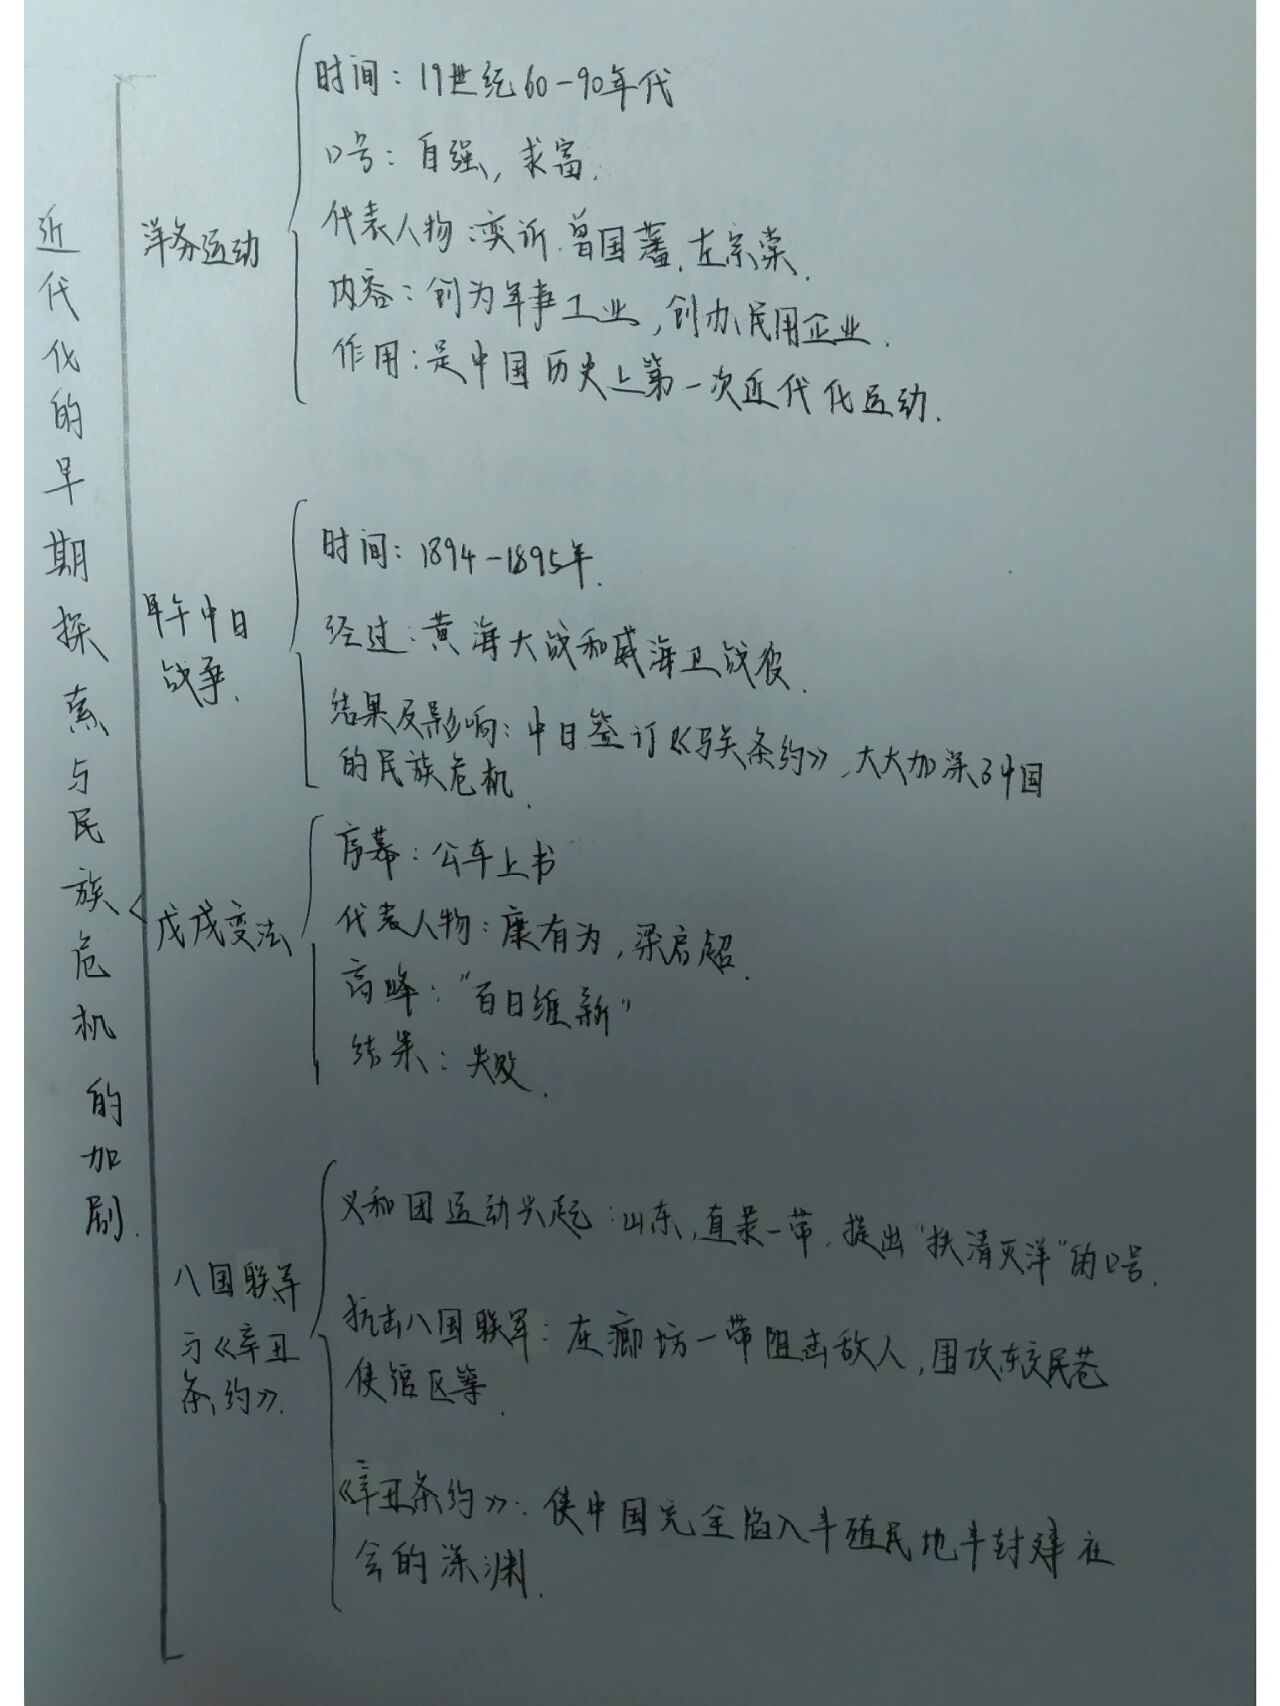 近代化的早期探索与民族危机的加剧.
洋务运动
时间：19世纪60-90年代
口号：自强,求富.
代表人物：奕䜣.曾国藩.左宗棠.
内容：创为军事工业,创办民用企业.
作用：是中国历史上第一次近代化运动.
甲午中日
战争.
时间：1894-1895年.
经过：黄海大战和威海卫战役.
结果及影响：中日签订《马关条约》,大大加深了中国
的民族危机.
戊戌变法
序幕：公车上书
代表人物：康有为,梁启超.
高峰："百日维新"
结果：失败.
八国联军
与《辛丑
条约》.
义和团运动兴起：山东,直隶一带,提出"扶清灭洋"的口号.
抗击八国联军：在廊坊一带阻击敌人,围攻东交民巷
使馆区等.
《辛丑条约》：使中国完全陷入半殖民地半封建社
会的深渊.